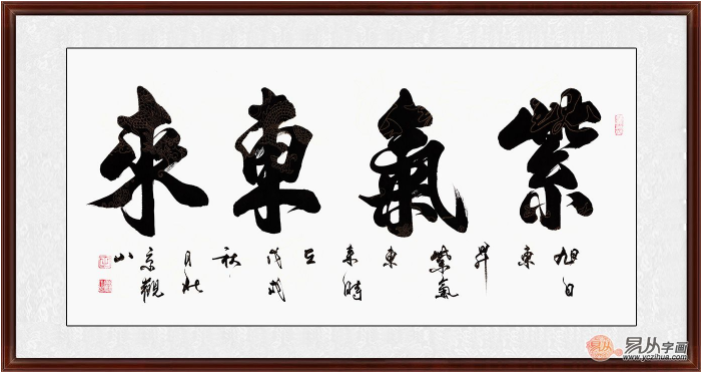 紫氣東來
旭日
東
昇
紫氣
東
來時
在
戊戌
秋
月於
京觀
山
易从字画
www.yczihua.com